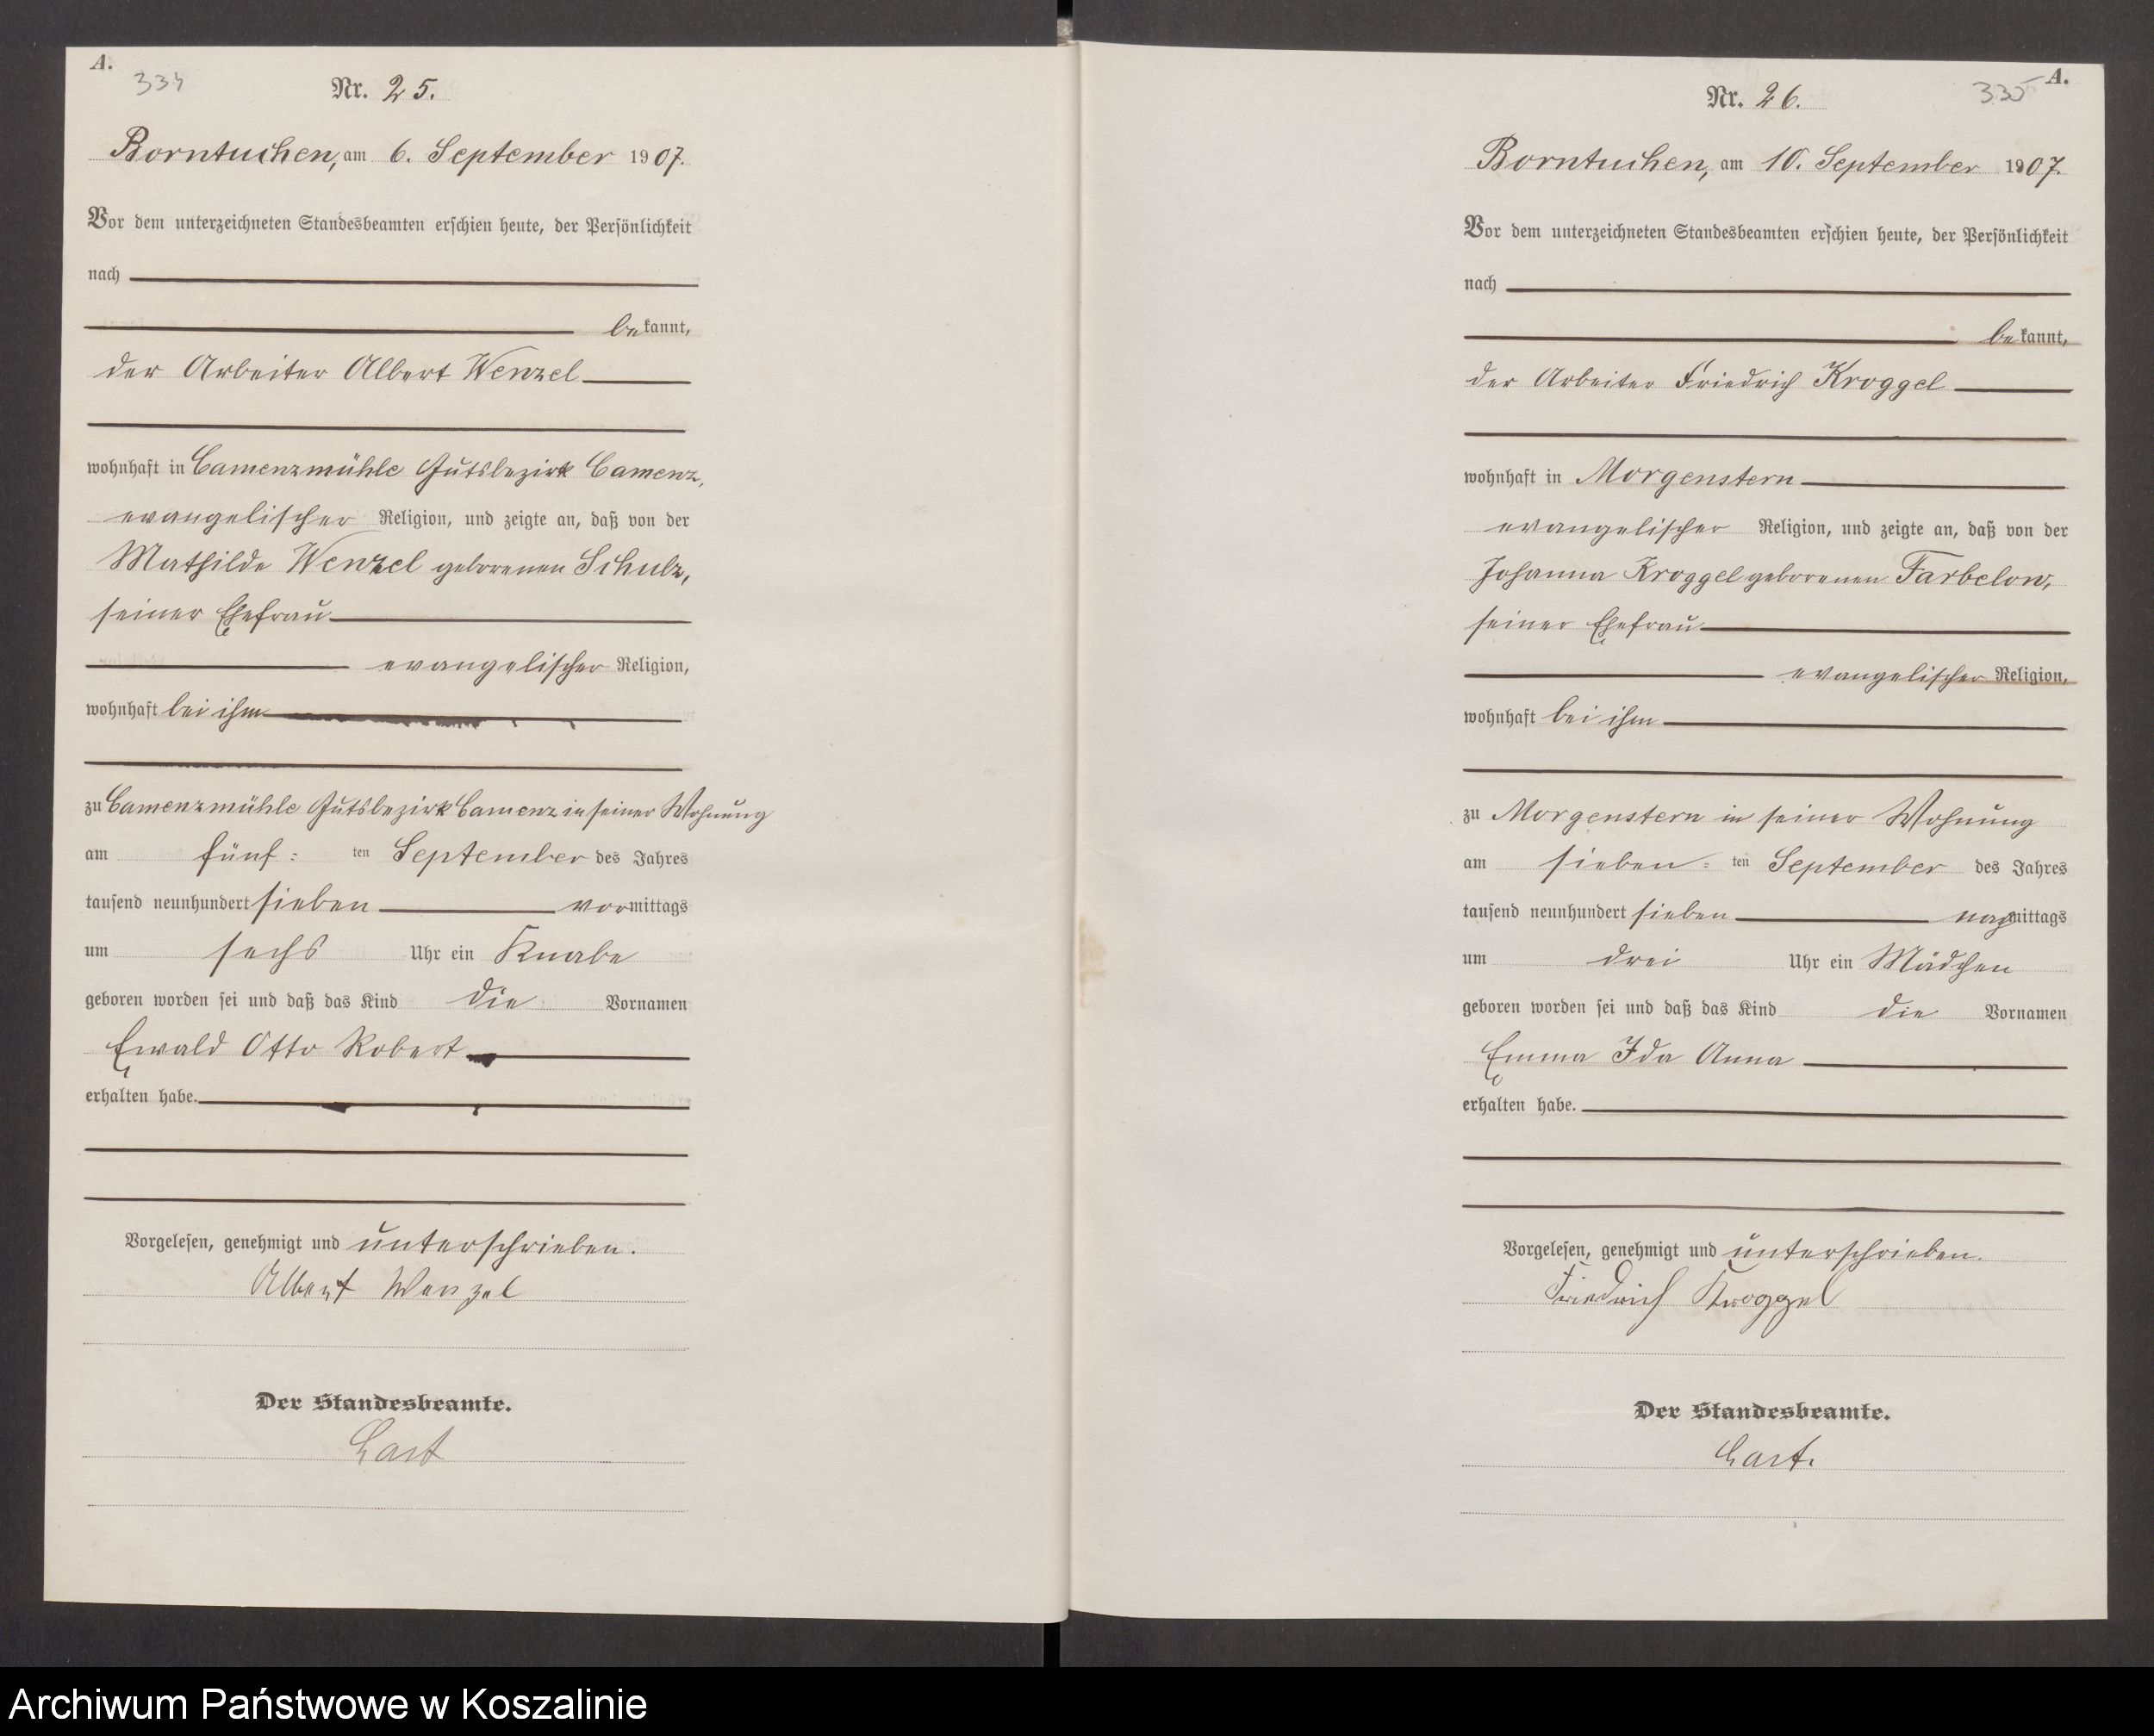 A.
334
Nr. 25.
Borntuchen, am 6. September 1907.
Vor dem unterzeichneten Standesbeamten erschien heute, der Persönlichkeit
nach
bekannt,
der Arbeiter Albert Wenzel
wohnhaft in Camenzmühle Gutsbezirk Camenz,
evangelischer Religion, und zeigte an, daß von der
Mathilde Wenzel geborenen Schulz,
seiner Ehefrau
evangelischer Religion,
wohnhaft bei ihm
zu Camenzmühle Gutsbezirk Camenz in seiner Wohnung
am fünf=ten September des Jahres
tausend neunhundert sieben vormittags
um sechs Uhr ein Knabe
geboren worden sei und daß das Kind die Vornamen
Ewald Otto Robert
erhalten habe.
Vorgelesen, genehmigt und unterschrieben.
Albert Wenzel
Der Standesbeamte.
A.
335
Nr. 26.
Borntuchen, am 10. September 1907.
Vor dem unterzeichneten Standesbeamten erschien heute, der Persönlichkeit
nach
bekannt,
der Arbeiter Friedrich Kroggel
wohnhaft in Morgenstern
evangelischer Religion, und zeigte an, daß von der
Johanna Kroggel geborenen Farbelow,
seiner Ehefrau
evangelischer Religion,
wohnhaft bei ihm
zu Morgenstern in seiner Wohnung
am sieben=ten September des Jahres
tausend neunhundert sieben nachmittags
um drei Uhr ein Mädchen
geboren worden sei und daß das Kind die Vornamen
Emma Ida Anna
erhalten habe.
Vorgelesen, genehmigt und unterschrieben.
Friedrich Kroggel
Der Standesbeamte.
Archiwum Państwowe w Koszalinie